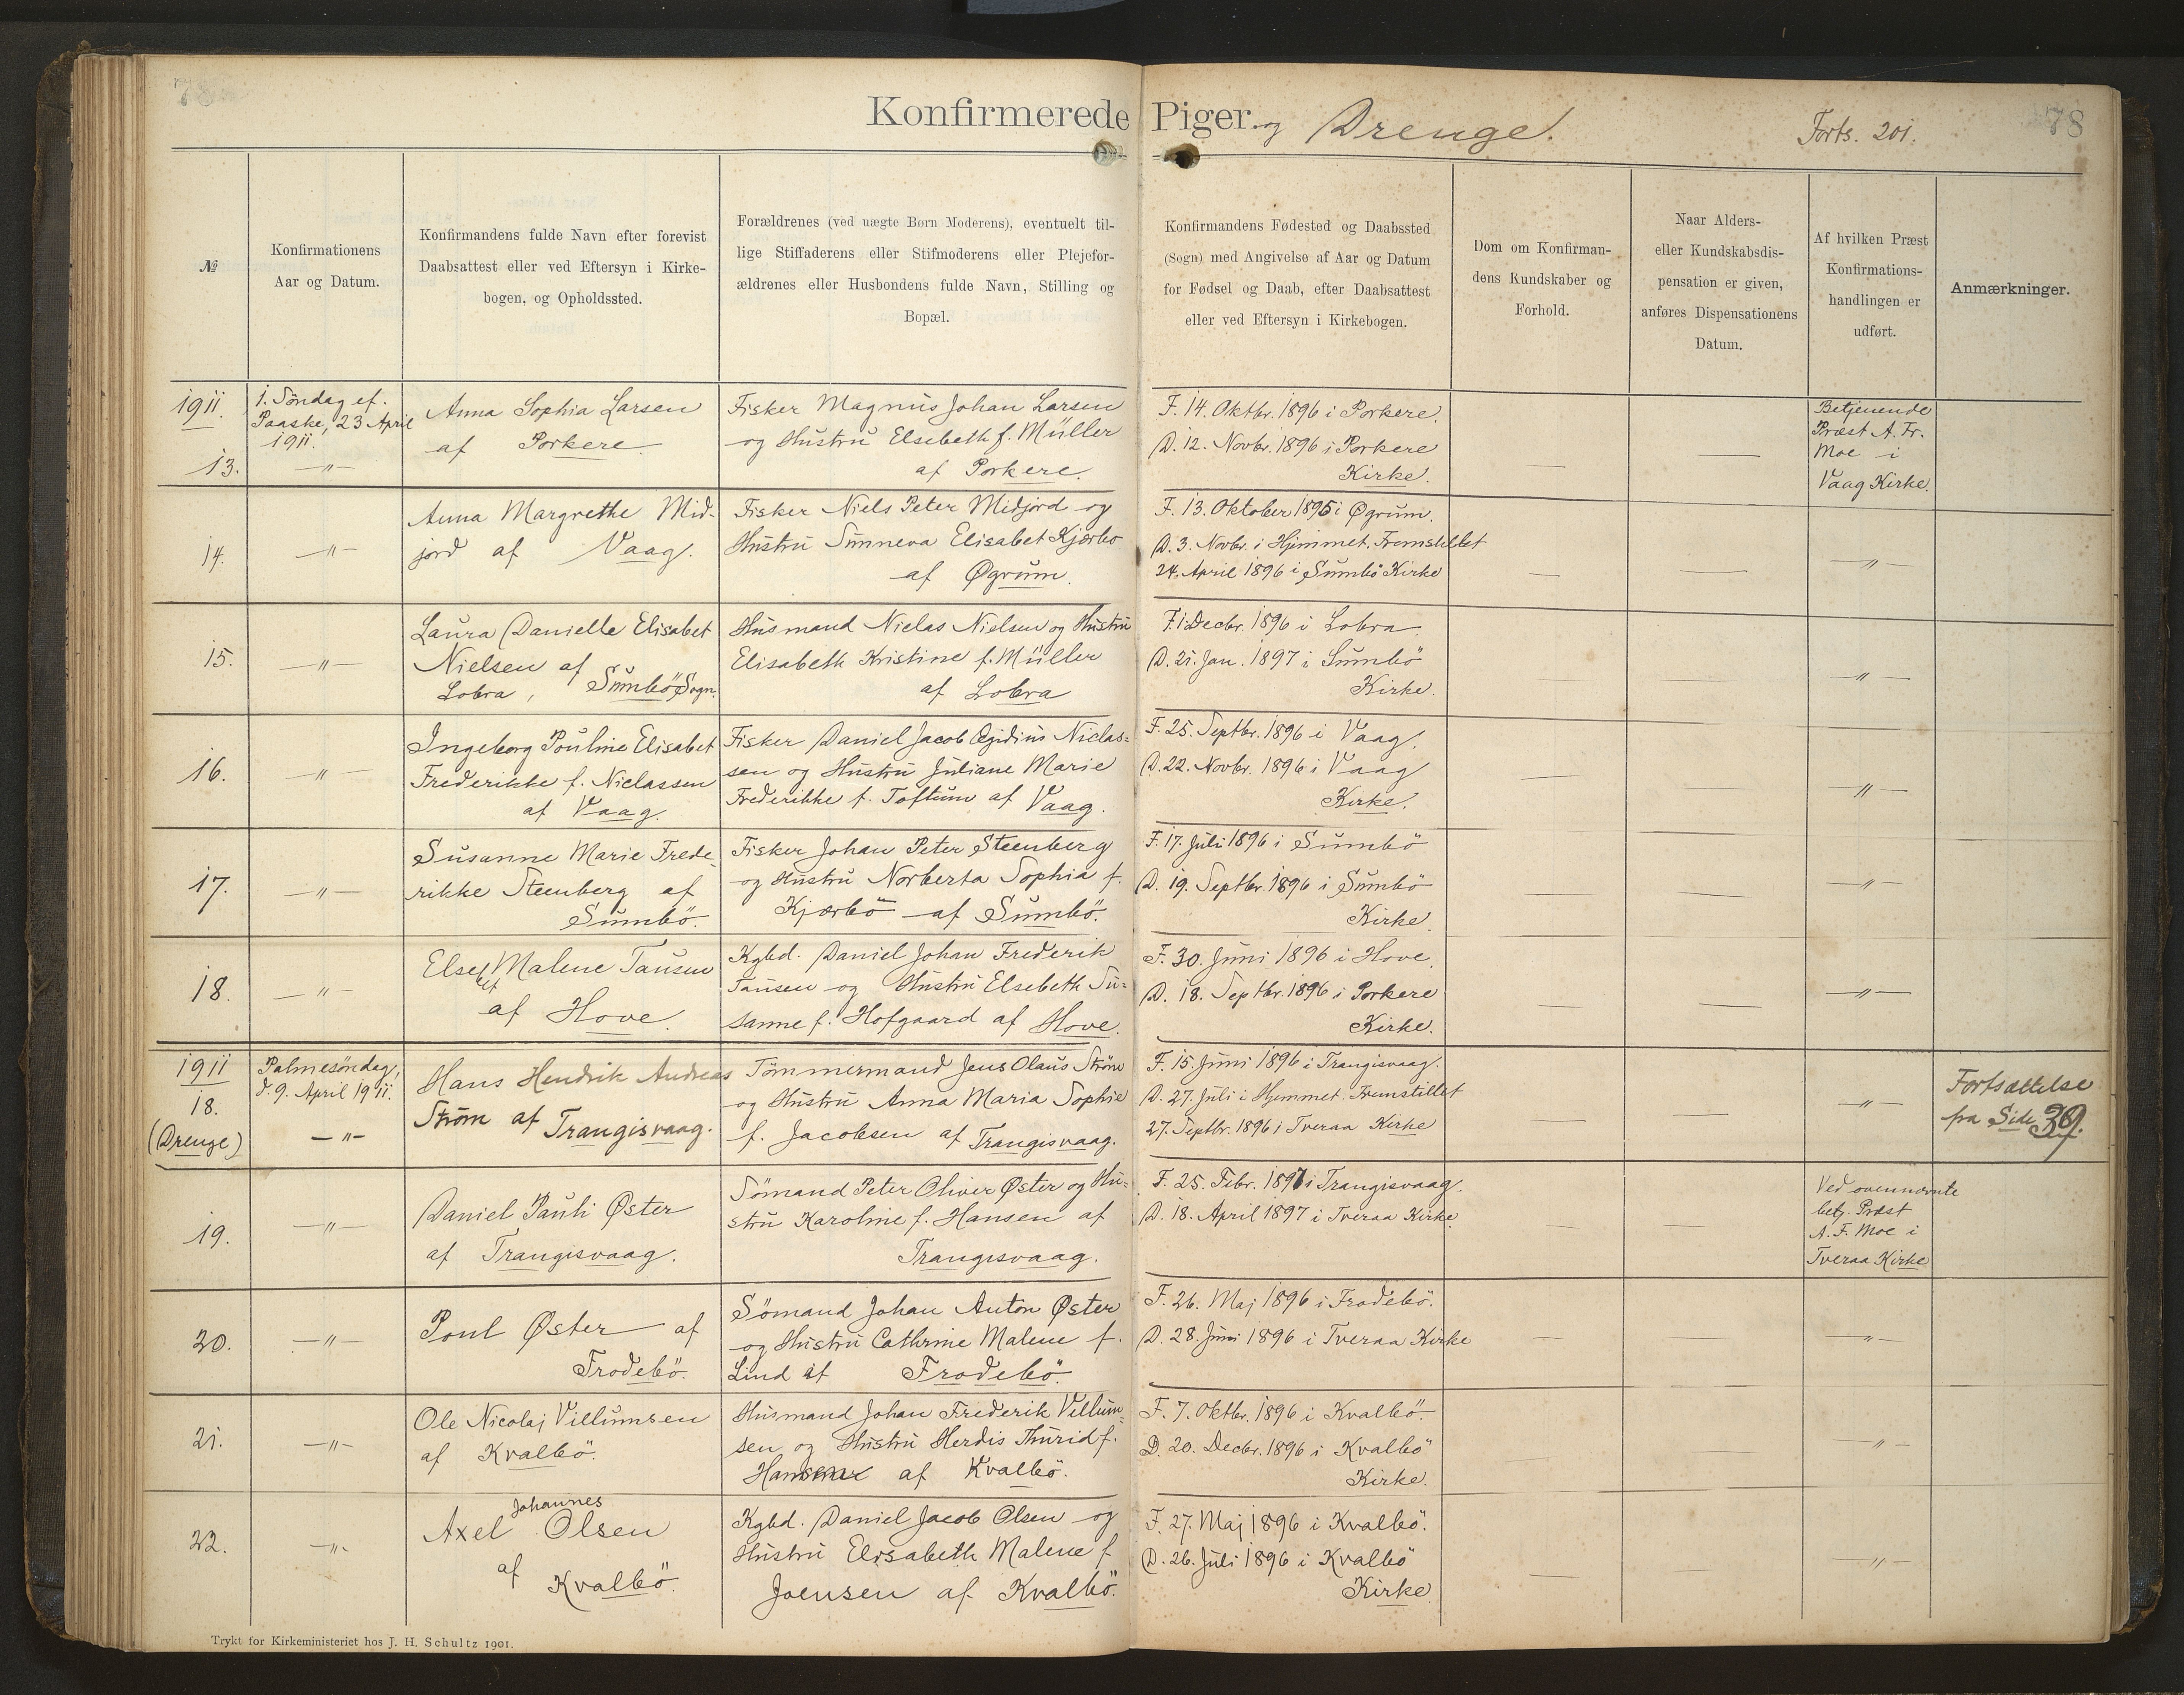 78
Konfirmerede Piger og Drenge.
Forts. 201.
78
№
Konfirmationens
Aar og Datum.
Konfirmandens fulde Navn efter forevist
Daabsattest eller ved Eftersyn i Kirke-
bogen, og Opholdssted.
Forældrenes (ved uægte Børn Moderens), eventuelt til-
lige Stiffaderens eller Stifmoderens eller Plejefor-
ældrenes eller Husbondens fulde Navn, Stilling og
Bopæl.
Konfirmandens Fødested og Daabssted
(Sogn) med Angivelse af Aar og Datum
for Fødsel og Daab, efter Daabsattest
eller ved Eftersyn i Kirkebogen.
Dom om Konfirman-
dens Kundskaber og
Forhold.
Naar Alders-
eller Kundskabsdis-
pensation er given,
anføres Dispensationens
Datum.
Af hvilken Præst
Konfirmations-
handlingen er
udført.
Anmærkninger.
1911.
13.
1. Söndag ef.
Paaske, 23 April
1911.
—〃—
Anna Sophia Larsen
af Porkere.
Fisker Magnus Johan Larsen
og Hustru Elsebeth f. Müller
af Porkere.
F. 14. Oktbr. 1896 i Porkere.
D. 12. Novbr. 1896 i Porkere
Kirke.
—
—
Betjenende
Præst A. Fr.
Moe i
Vaag Kirke.
14.
—〃—
Anna Margrethe Mid-
jord af Vaag.
Fisker Niels Peter Midjord og
Hustru Sunneva Elisabet Kjærbo
af Øgrum.
F. 13. Oktober 1895 i Øgrum.
D. 3. Novbr. i Hjemmet. Fremstillet
24. April 1896 i Sumbö Kirke
—
—
—〃—
15.
—〃—
Laura Danielle Elisabet
Nielsen af
Lobra, Sumbö Sogn.
Husmand Niclas Nielsen og Hustru
Elisabeth Kristine f. Müller
af Lobra
F. 1. Decbr. 1896 i Lobra.
D. 21. Jan. 1897 i Sumbö
Kirke.
—
—
—〃—
16.
—〃—
Ingeborg Pouline Elisabet
Frederikke f. Niclassen
af Vaag.
Fisker Daniel Jacob Ægidius Niclas=
sen og Hustru Juliane Marie
Frederikke f. Toftum af Vaag.
F. 25. Septbr. 1896 i Vaag.
D. 22. Novbr. 1896 i Vaag
Kirke.
—
—
—〃—
17.
—〃—
Susanne Marie Frede-
rikke Steenberg af
Sumbö.
Fisker Johan Peter Steenberg
og Hustru Norberta Sophia f.
Kjærbö af Sumbö.
F. 17. Juli 1896 i Sumbö
D. 19. Septbr. 1896 i Sumbö
Kirke.
—
—
—〃—
18.
—〃—
Elsebet Malene Tausen
af Hove.
Kgbd. Daniel Johan Frederik
Tausen og Hustru Elsebeth Su=
sanne f. Hofgaard af Hove.
F. 30. Juni 1896 i Hove.
D. 18. Septbr. 1896 i Porkere
Kirke.
—
—
—〃—
1911
18.
(Drenge)
Palmesöndag,
d. 9. April 1911.
—〃—
Hans Hendrik Andreas
Strøm af Trangisvaag.
Tömmermand Jens Olaus Strøm
og Hustru Anna Maria Sophie
f. Jacobsen af Trangisvaag.
F. 15. Juni 1896 i Trangisvaag.
D. 27. Juli i Hjemmet. Fremstillet
27. Septbr. 1896 i Tveraa Kirke
—
—
—〃—
Fortsættelse
fra Side 39.
19.
—〃—
Daniel Pauli Øster
af Trangisvaag.
Sömand Peter Oliver Øster og Hu=
stru Karoline f. Hansen af
Trangisvaag.
F. 25. Febr. 1897 i Trangisvaag.
D. 18. April 1897 i Tveraa Kirke
—
—
Ved ovennævnte
betj. Præst
A. F. Moe i
Tveraa Kirke
20.
—〃—
Poul Øster af
Frodebö.
Sömand Johan Anton Øster
og Hustru Cathrine Malene f.
Lind af Frodebö.
F. 26. Maj 1896 i Frodebö.
D. 28. Juni 1896 i Tveraa Kirke
—
—
—〃—
21.
—〃—
Ole Nicolaj Villumsen
af Kvalbö.
Husmand Johan Frederik Villum=
sen og Hustru Herdis Thurid f.
af Kvalbö.
F. 7. Oktbr. 1896 i Kvalbö.
D. 20. Decbr. 1896 i Kvalbö
Kirke.
—
—
—〃—
22.
—〃—
Axel Johannes Olsen
af
Kvalbö.
Kgbd. Daniel Jacob Olsen og
Hustru Elisabeth Malene f.
Joensen af Kvalbö.
F. 27. Maj 1896 i Kvalbö.
D. 26. Juli 1896 i Kvalbö
Kirke.
—
—
—〃—
Trykt for Kirkeministeriet hos J. H. Schultz 1901.